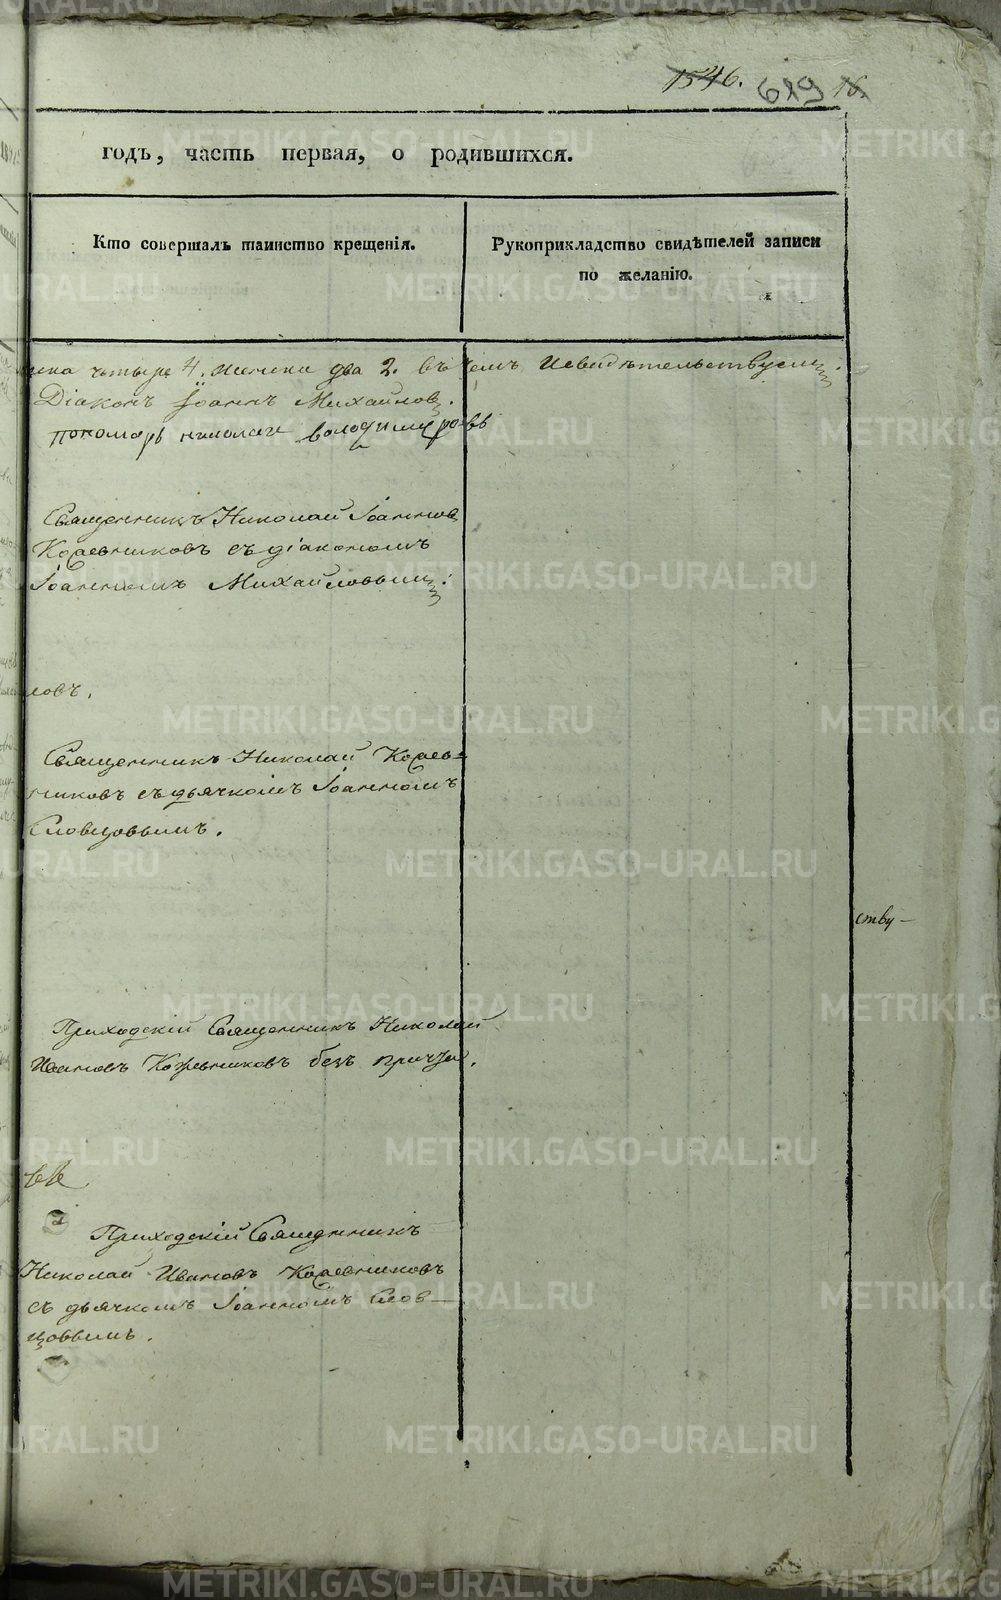 METRIKI.GASO-URAL.RU
1546. 619 16.
годъ, часть первая, о родившихся.
Кто совершалъ таинство крещенія.
Рукоприкладство свидѣтелей записи
по желанію.
четыре 4. женска два 2. въ чемъ и свидѣтельствуемъ.
Діаконъ Іоаннъ Михайловъ.
пономарь николаи
Священникъ Николай Іоанновъ
Кожевниковъ съ діакономъ
Іоанномъ Михайловымъ.
ловъ.
Священникъ Николай Кожев=
никовъ съ дьячкомъ Іоанномъ
Словцовымъ.
ству-
Приходскій Священникъ Николай
Ивановъ Кожевниковъ безъ причта.
Приходскій Священникъ
Николай Ивановъ Кожевниковъ
съ дьячкомъ Іоанномъ Слов-
цовымъ.